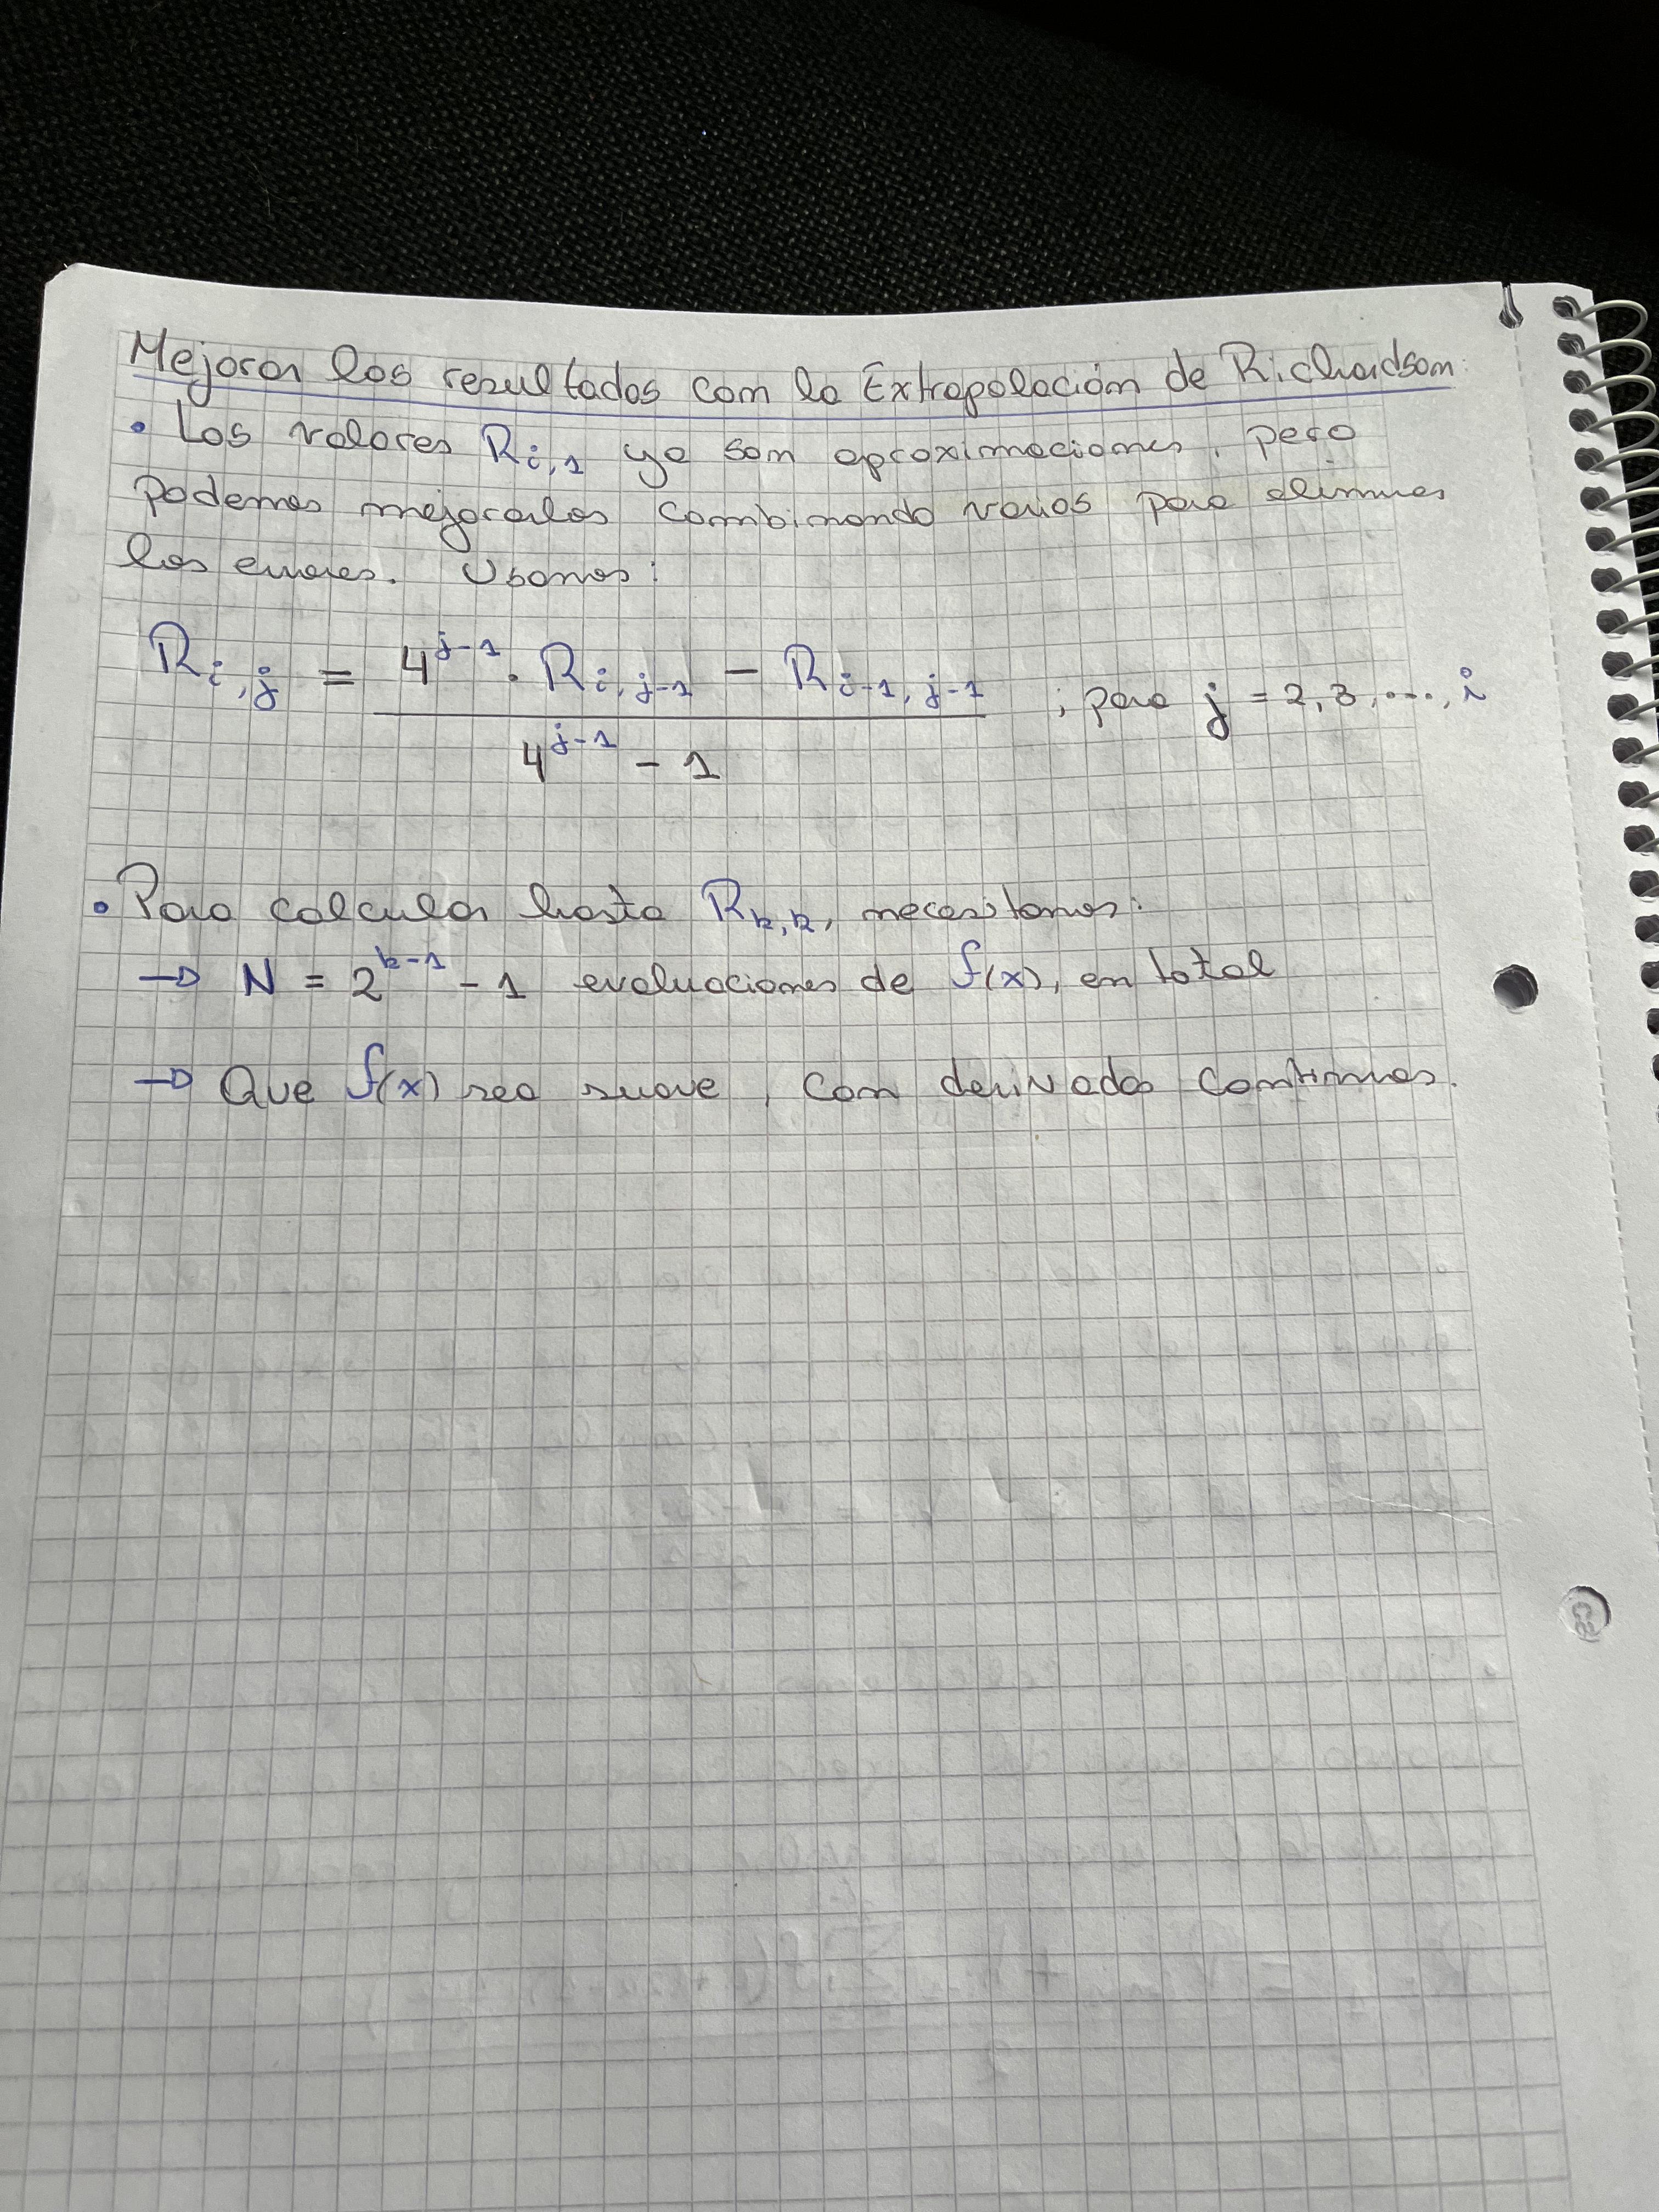 Mejorar los resultados con la Extrapolación de Richardson:
• Los valores R_{i,1} ya son aproximaciones, pero
podemos mejorarlos combinando varios para eliminar
los errores. Usamos:
R_{i,j} = (4^{j-1} · R_{i,j-1} - R_{i-1,j-1}) / (4^{j-1} - 1) ; para j = 2, 3, ..., i
• Para calcular hasta R_{k,k}, necesitamos:
→ N = 2^{k-1} - 1 evaluaciones de f(x), en total
→ Que f(x) sea suave, con derivadas continuas.